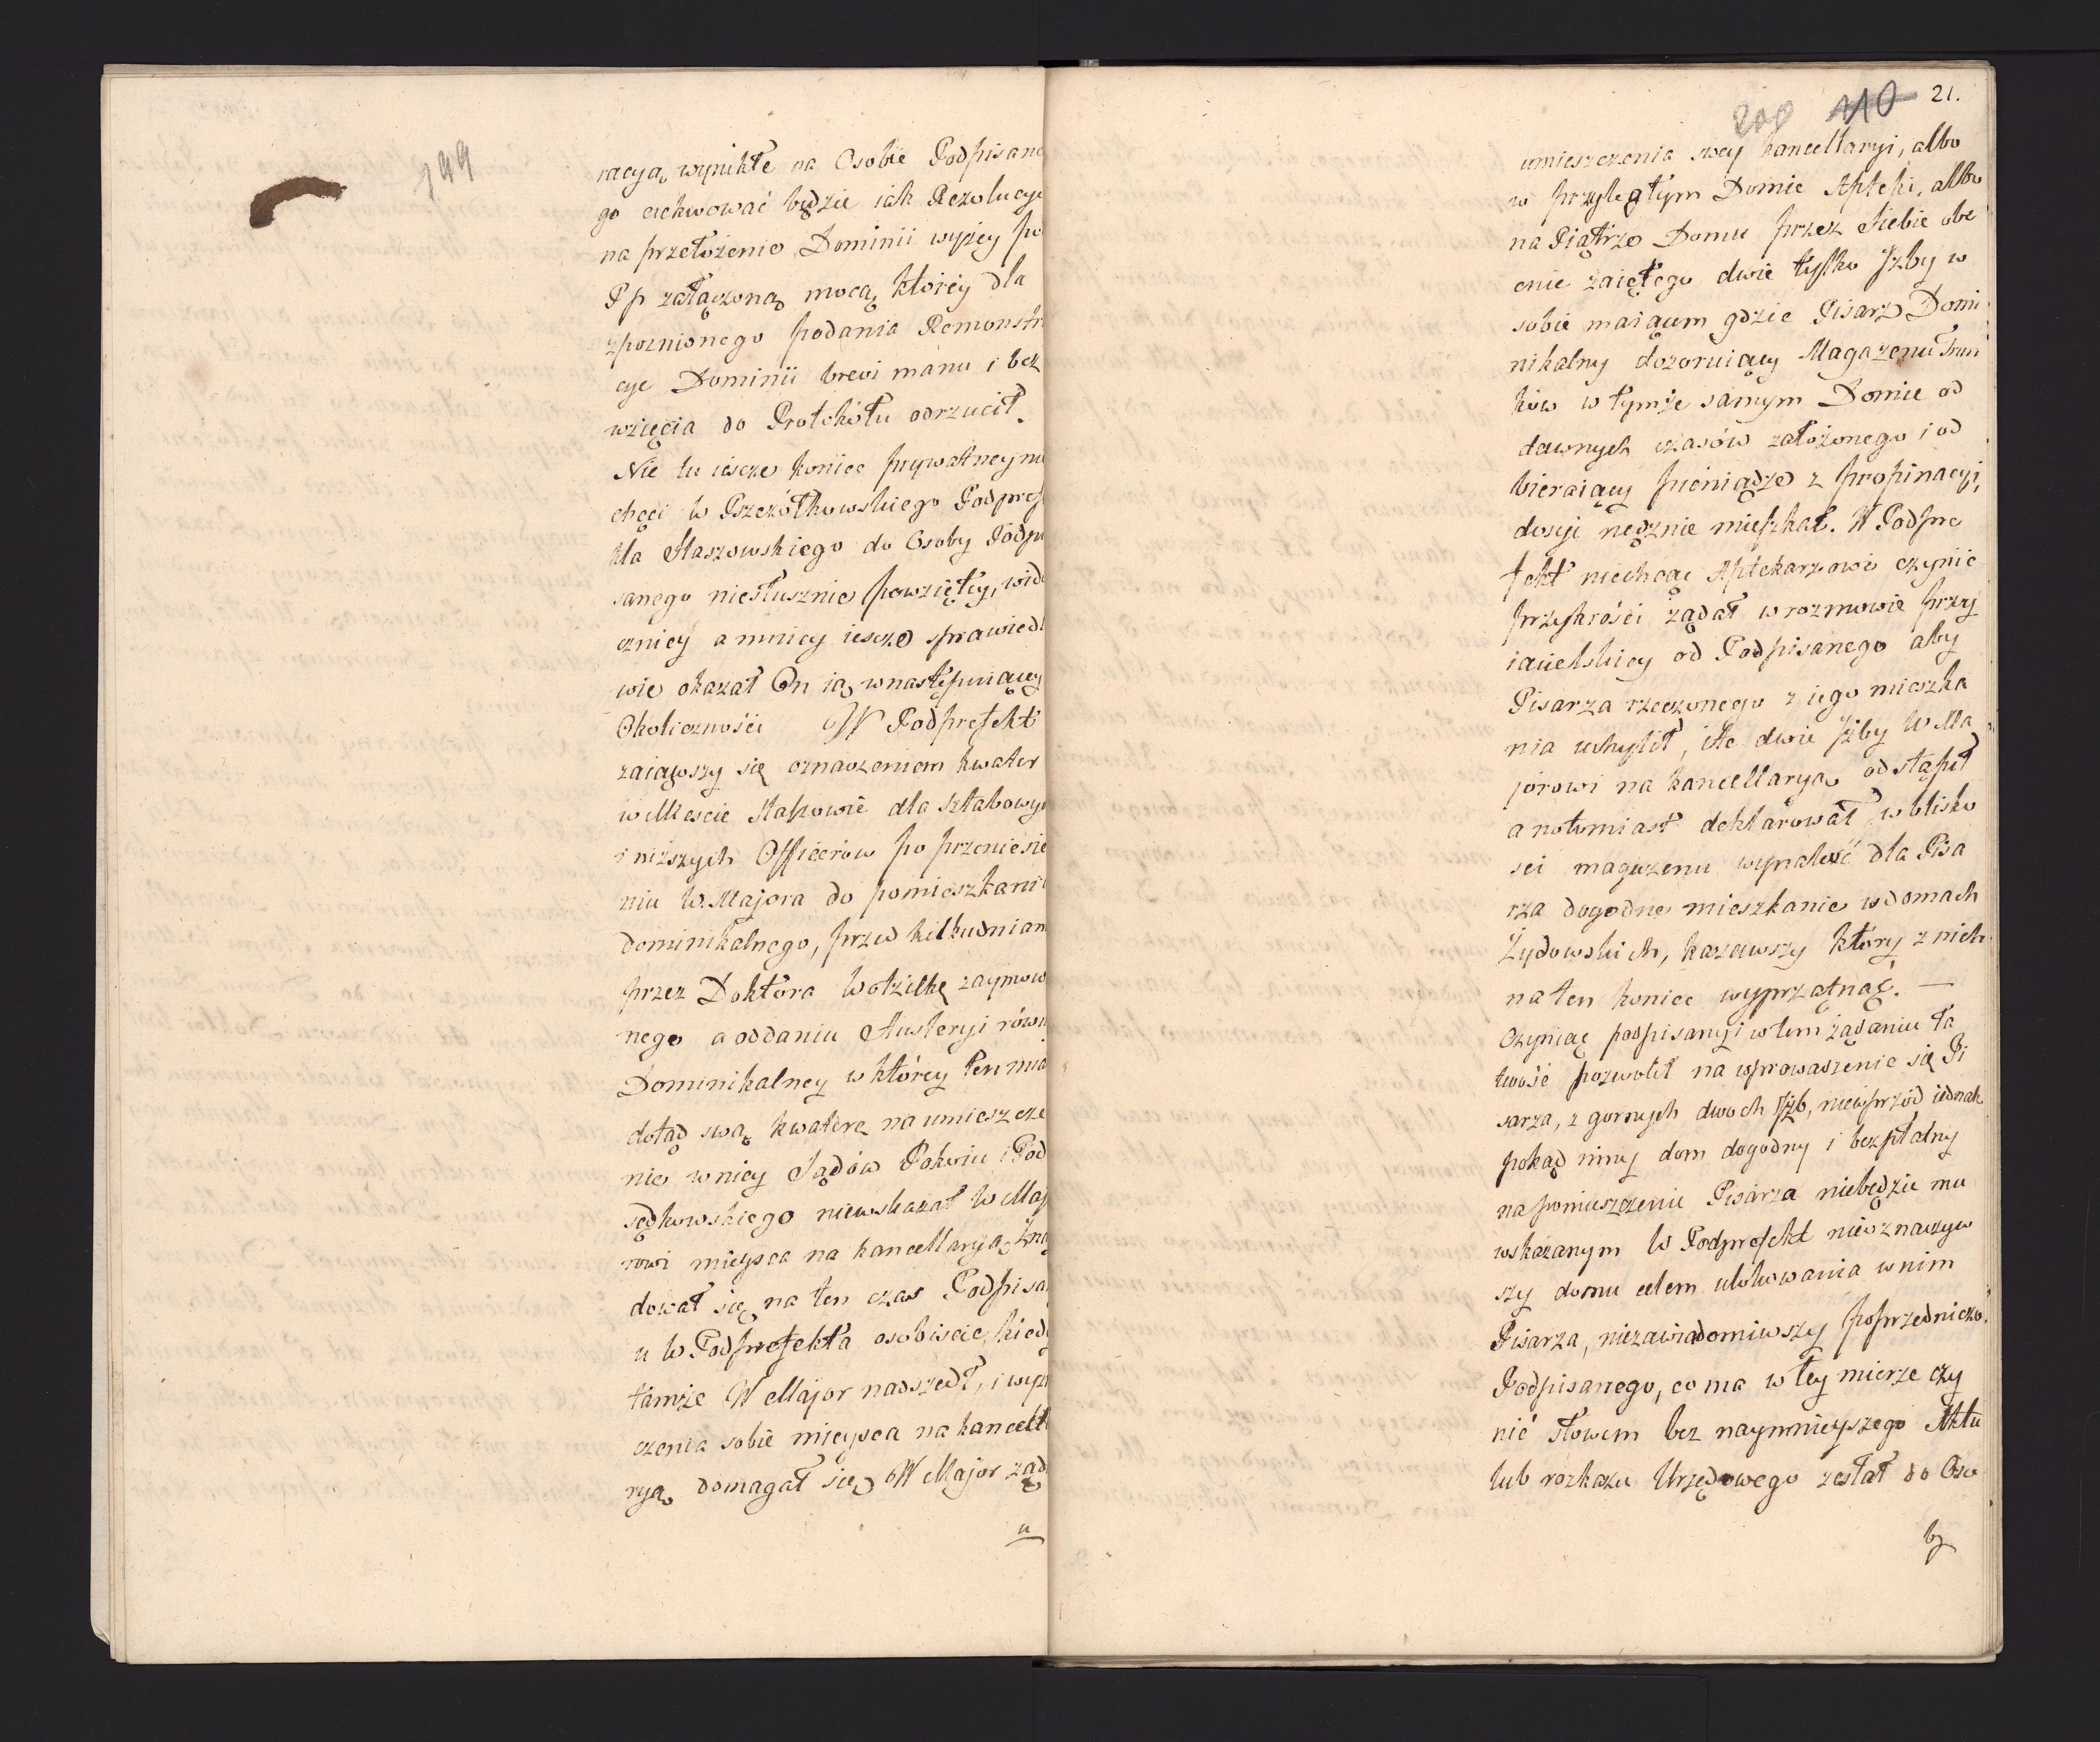 199
racyą wynikłe na Osobie Podpisane
go exekwować będzie iak Rezolucyę
na przełożenie Dominii wyżey po
Pp załączoną mocą którey dla
zpoznionego podania Remonstr
cye Dominii brevi manu i bez
wzięcia do Protokółu odrzucił.
Nie tu ieszcze koniec prywatney nie
chęci W Pszczółkowskiego Podpref
kta Staszowskiego do Osoby Podpi
sanego niesłusznie powziętey, wido
czniey a mniey ieszcze sprawiedl
wie okazał On ią w następuiącey
Okoliczności W Podprefekt
zaiąwszy się oznaczeniem kwater
w Miescie Rakowie dla sztabowyc
i niższych Officerów po przeniesie
niu W. Majora do pomieszkania
dominikalnego, przed kilkudniam
przez Doktora Wotzilkę zaymow
nego a oddaniu Austeryi równ
Dominikalney w którey ten mia
dotąd swą kwaterę na umieszcze
nie w niey Sądów Pokoiu i Pod
sędkowskiego niewskazał W Maj
rowi mieysca na kancellaryą, Zna
dował się na ten czas Podpisa
u W Podprefekta osobiscie, kiedy
tamże W Major nadszedł, i wyzn
czenia sobie mieysca na kancell
ryą domagał się, W Major żąda
u
200 110 21.
umieszczenia swey kancellaryi, albo
w przyległym Domie Apteki, albo
na Piątrze Domu przez Siebie obe
cnie zaiętego dwie tylko Izby w
sobie maiącem gdzie Pisarz Domi
nikalny dozoruiący Magazenu Trun
ków w tymże samym Domie od
dawnych czasów założonego i od
bieraiący pieniądze z propinacyi,
dosyć nędznie mieszkał. W Podpre
fekt niechcąc Aptekarzowi czynić
przykrości żądał w rozmowie przy
iacielskiey od Podpisanego aby
Pisarza rzeczonego z iego mieszka
nia uchylił, iste dwie Izby W Ma
jorowi na kancellaryą odstąpił
a natomiast deklarował w blisko
sci magazenu wynaleść dla Pisa
rza dogodne mieszkanie w domach
Żydowskich, kazawszy który z nich
na ten koniec wyprzątnąć. —
Czyniąc podpisany i w tem żądaniu ła
twość pozwolił na wprowadzenie się Pi
sarza, z gornych dwoch Izb, niewprzód iednak
pokąd inny dom dogodny i bezpłatny
na pomieszczenie Pisarza niebędzie mu
wskazanym W Podprefekt nieoznaczyw
szy domu celem ulokowania w nim
Pisarza, niezawiadomiwszy poprzedniczo
Podpisanego, co ma w tey mierze czy
nić słowem bez naymnieyszego Aktu
lub rozkazu Urzędowego zesłał do Oso
by